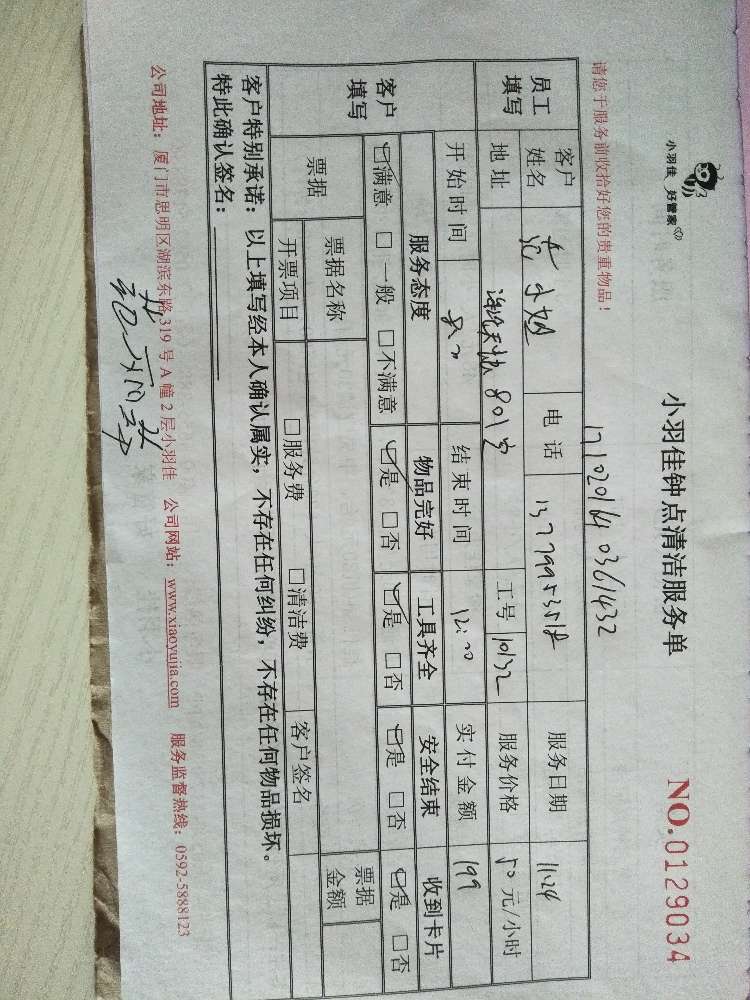 小羽佳 好管家
小羽佳钟点清洁服务单
NO.0129034
请您于服务前收拾好您的贵重物品!
员工填写
客户姓名
小姐
电话 13779953518
服务日期 11.24
地址 801室
工号 10132
服务价格 50 元/小时
开始时间
结束时间 12:00
实付金额 199
客户填写
服务态度 物品完好 工具齐全 安全结束 收到卡片
☑满意 □一般 □不满意 ☑是 □否 ☑是 □否 ☑是 □否 ☑是 □否
票据 票据名称 票据金额
开票项目 □服务费 □清洁费 客户签名
客户特别承诺:以上填写经本人确认属实,不存在任何纠纷,不存在任何物品损坏。
特此确认签名:
公司地址:厦门市思明区湖滨东路319号A幢2层小羽佳 公司网站:www.xiaoyujia.com 服务监督热线:0592-5888123